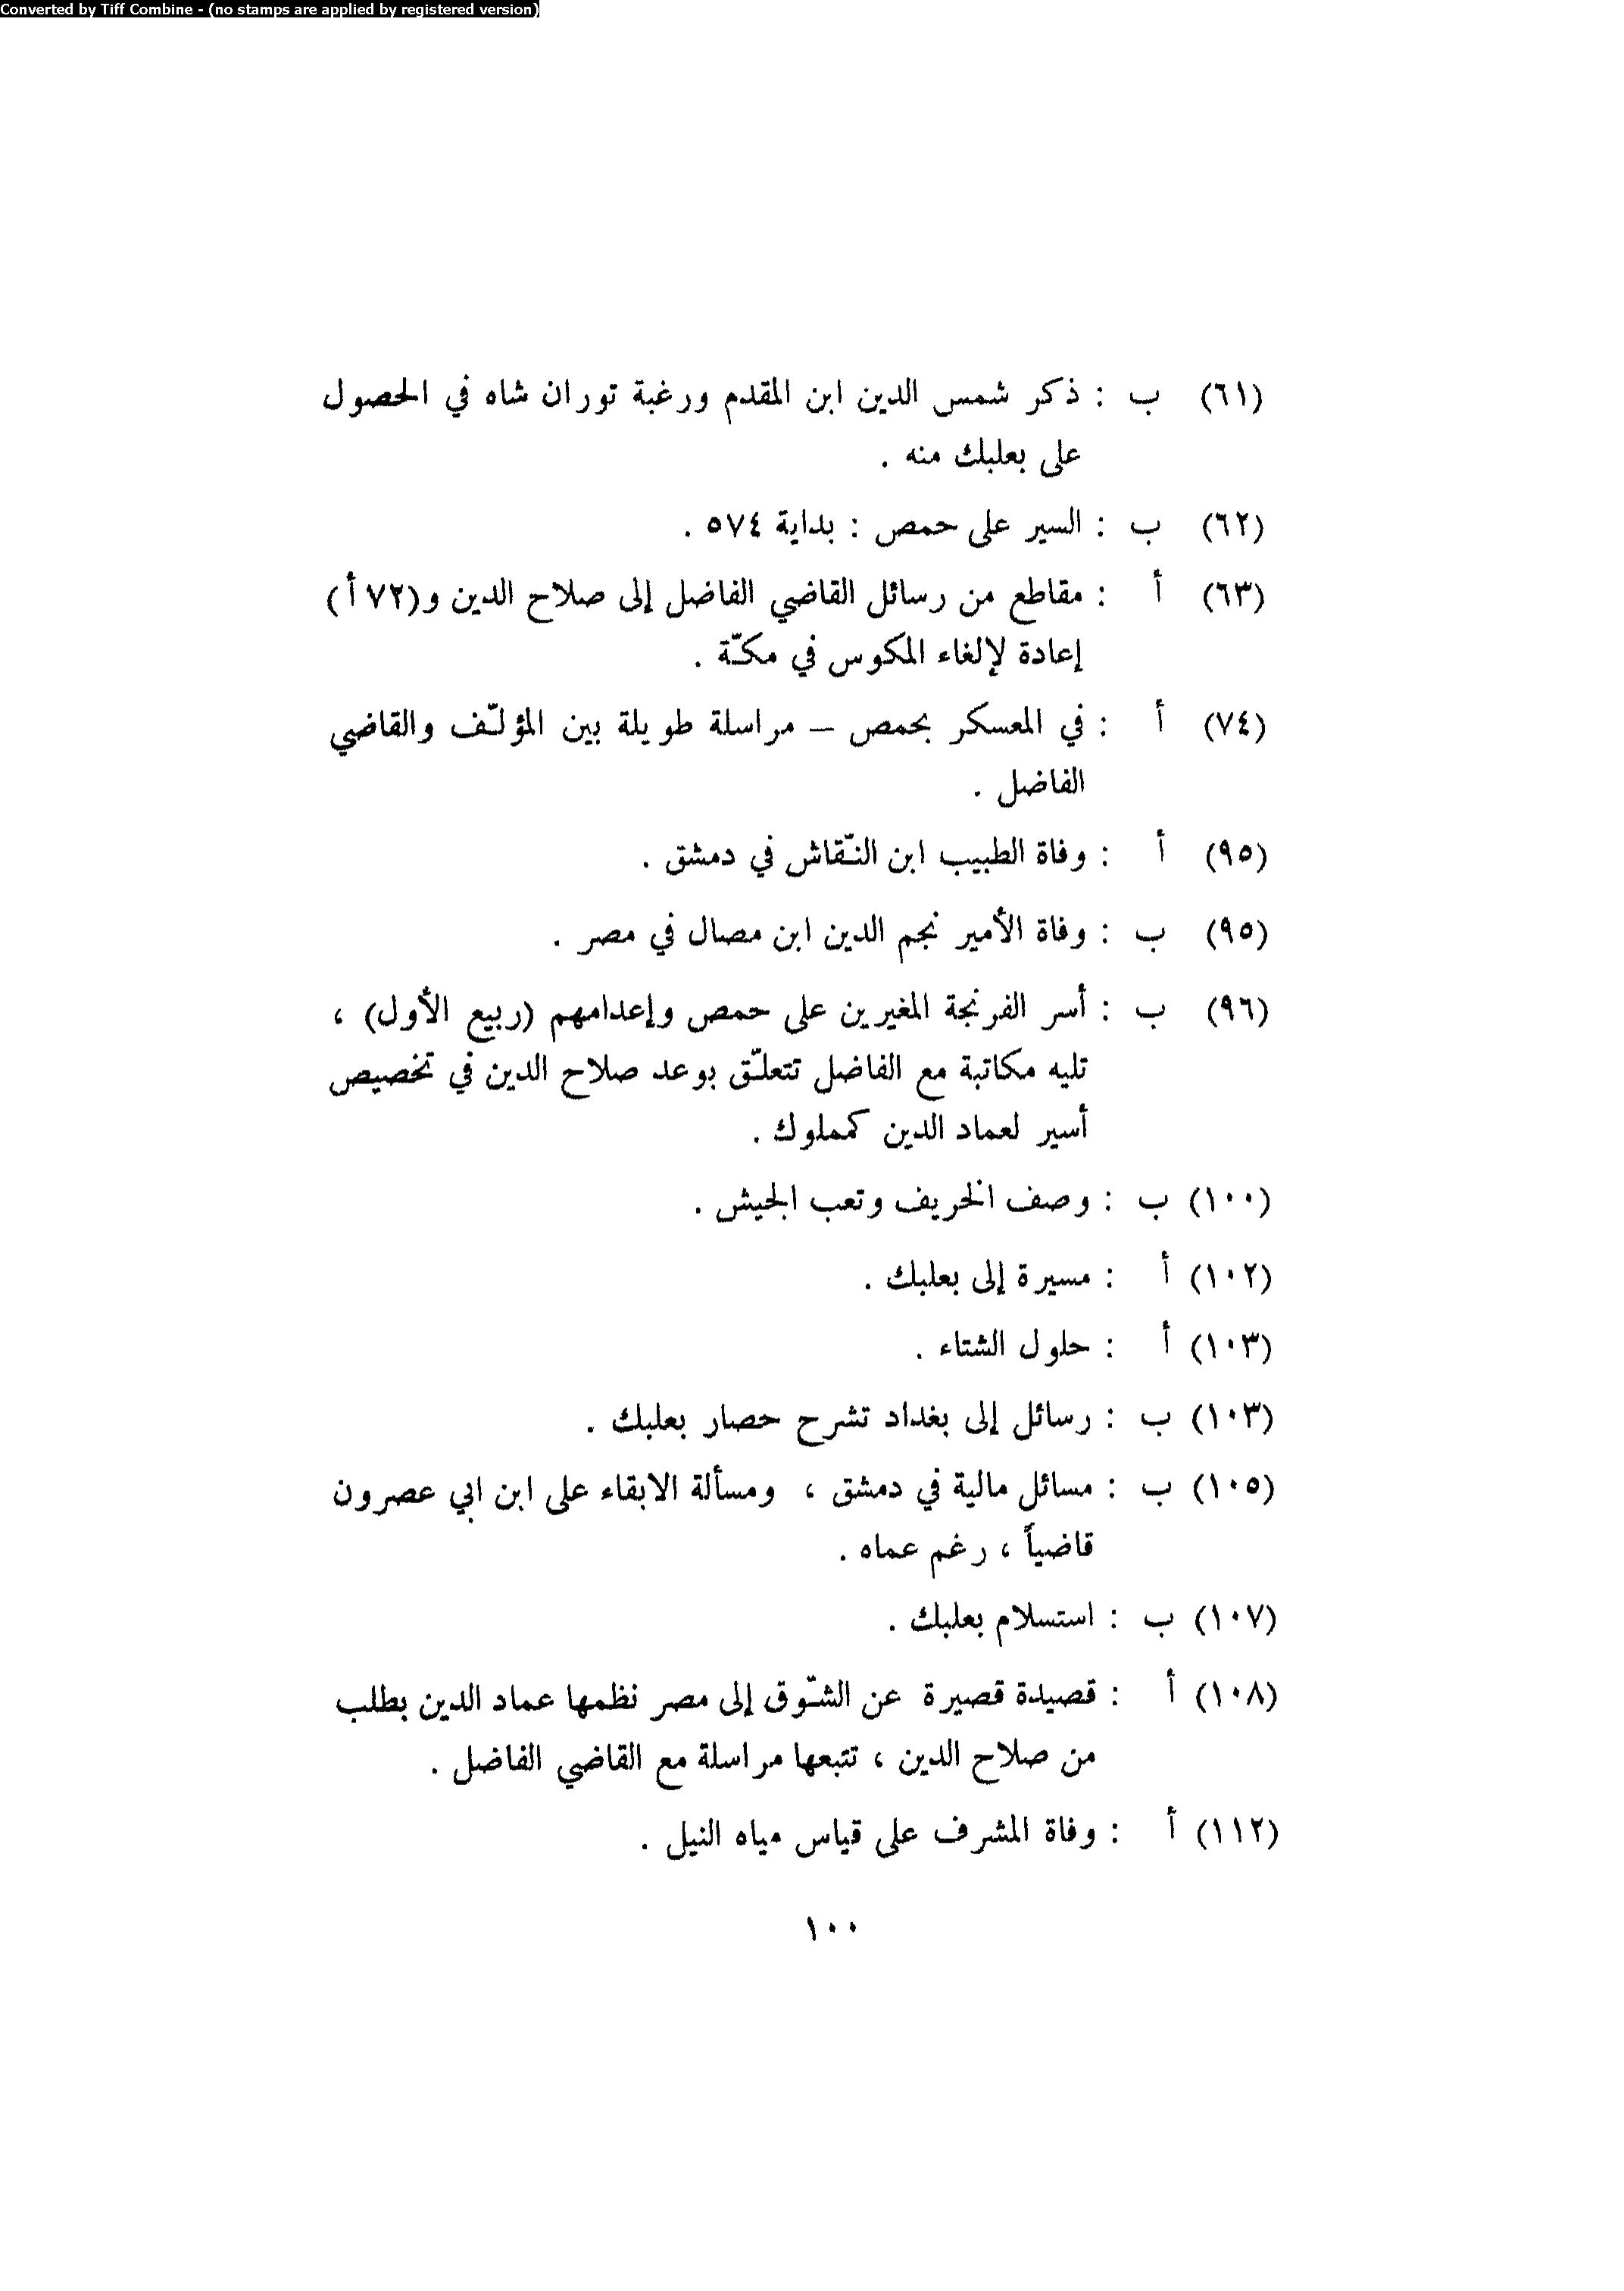 Converted by Tiff Combine - (no stamps are applied by registered version)
(٦١) ب : ذكر شمس الدين ابن المقدم ورغبة توران شاه في الحصول
على بعلبك منه .
(٦٢) ب : السير على حمص : بداية ٥٧٤ .
(٦٣) أ : مقاطع من رسائل القاضي الفاضل إلى صلاح الدين و(٧٢ أ)
إعادة لإلغاء المكوس في مكّة .
(٧٤) أ : في المعسكر بحمص – مراسلة طويلة بين المؤلّف والقاضي
الفاضل .
(٩٥) أ : وفاة الطبيب ابن النّقاش في دمشق .
(٩٥) ب : وفاة الأمير نجم الدين ابن مصال في مصر .
(٩٦) ب : أسر الفرنجة المغيرين على حمص وإعدامهم (ربيع الأول) ،
تليه مكاتبة مع الفاضل تتعلّق بوعد صلاح الدين في تخصيص
أسير لعماد الدين كمملوك .
(١٠٠) ب : وصف الخريف وتعب الجيش .
(١٠٢) أ : مسيرة إلى بعلبك .
(١٠٣) أ : حلول الشتاء .
(١٠٣) ب : رسائل إلى بغداد تشرح حصار بعلبك .
(١٠٥) ب : مسائل مالية في دمشق ، ومسألة الابقاء على ابن ابي عصرون
قاضياً ، رغم عماه .
(١٠٧) ب : استسلام بعلبك .
(١٠٨) أ : قصيدة قصيرة عن الشّوق إلى مصر نظمها عماد الدين بطلب
من صلاح الدين ، تتبعها مراسلة مع القاضي الفاضل .
(١١٢) أ : وفاة المشرف على قياس مياه النيل .
١٠٠